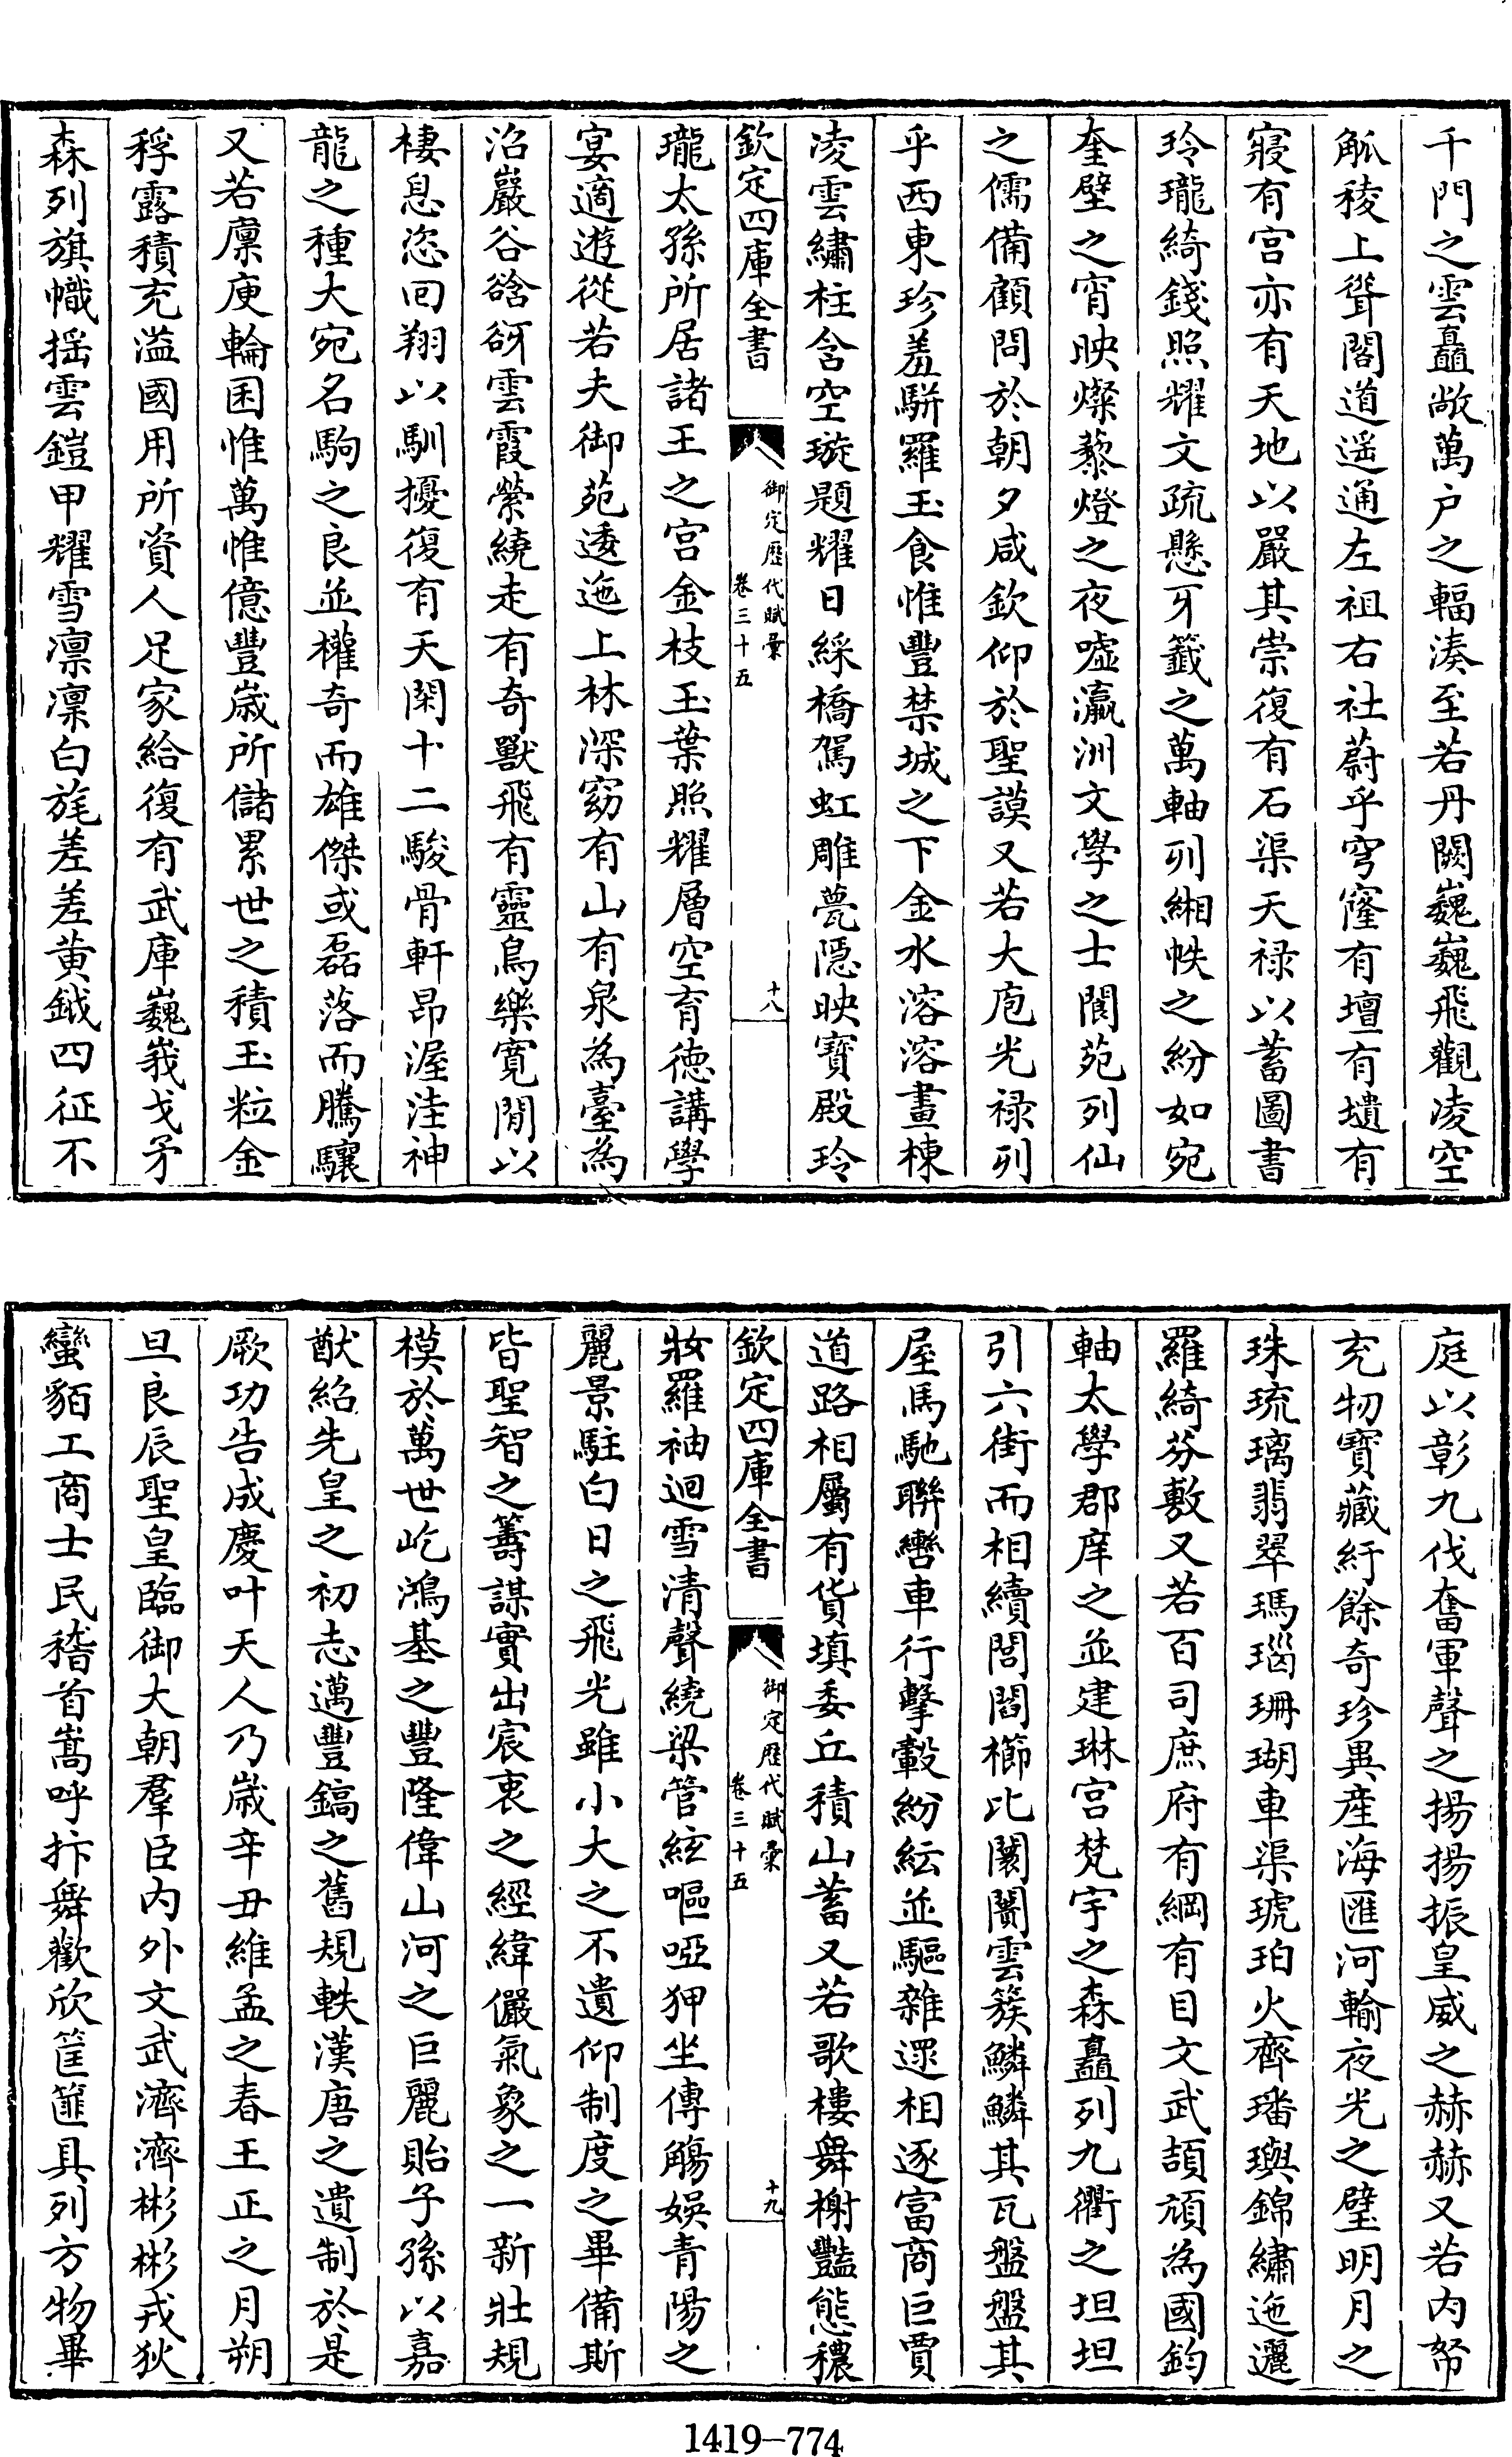 千門之雲矗敞萬户之輻湊至若丹闕巍巍飛觀凌空
觚稜上聳閣道遥通左祖右社蔚乎穹窿有壇有壝有
寢有宫亦有天地以嚴其崇復有石渠天禄以蓄圖書
玲瓏綺錢照耀文疏懸牙籤之萬軸列緗帙之紛如宛
奎壁之宵映燦藜燈之夜嘘瀛洲文學之士閬苑列仙
之儒備顧問於朝夕咸欽仰於聖謨又若大庖光禄列
乎西東珍羞駢羅玉食惟豐禁城之下金水溶溶畫棟
凌雲繡柱含空璇題耀日綵橋駕虹雕甍隱映寶殿玲
欽定四庫全書
御定歷代賦彙
卷三十五
十八
瓏太孫所居諸王之宫金枝玉葉照耀層空育徳講學
宴適遊從若夫御苑逶迤上林深窈有山有泉為臺為
沼巖谷谽谺雲霞縈繞走有奇獸飛有靈鳥樂寛閒以
棲息恣回翔以馴擾復有天閑十二駿骨軒昂渥洼神
龍之種大宛名駒之良並權奇而雄傑或磊落而騰驤
又若廪庾輪囷惟萬惟億豐歳所儲累世之積玉粒金
稃露積充溢國用所資人足家給復有武庫巍峩戈矛
森列旗幟揺雲鎧甲耀雪凛凛白旄差差黄鉞四征不
庭以彰九伐奮軍聲之揚揚振皇威之赫赫又若内帑
充牣寶藏紆餘奇珍異産海匯河輸夜光之璧明月之
珠琉璃翡翠瑪瑙珊瑚車渠琥珀火齊璠璵錦繡迤邐
羅綺芬敷又若百司庶府有綱有目文武頡頏為國鈞
軸太學郡庠之並建琳宫梵宇之森矗列九衢之坦坦
引六街而相續閭閻櫛比闤闠雲簇鱗鱗其瓦盤盤其
屋馬馳聯轡車行擊轂紛紜並驅雜遝相逐富商巨賈
道路相屬有貨填委丘積山蓄又若歌樓舞榭豔態穠
欽定四庫全書
御定歷代賦彙
卷三十五
十九
妝羅袖迴雪清聲繞梁管絃嘔啞狎坐傳觴娯青陽之
麗景駐白日之飛光雖小大之不遺仰制度之畢備斯
皆聖智之籌謀實出宸衷之經緯儼氣象之一新壯規
模於萬世屹鴻基之豐隆偉山河之巨麗貽子孫以嘉
猷紹先皇之初志邁豐鎬之舊規軼漢唐之遺制於是
厥功告成慶叶天人乃歳辛丑維孟之春王正之月朔
旦良辰聖皇臨御大朝羣臣内外文武濟濟彬彬戎狄
蠻貊工商士民稽首嵩呼抃舞歡欣筐篚具列方物畢
1419-774